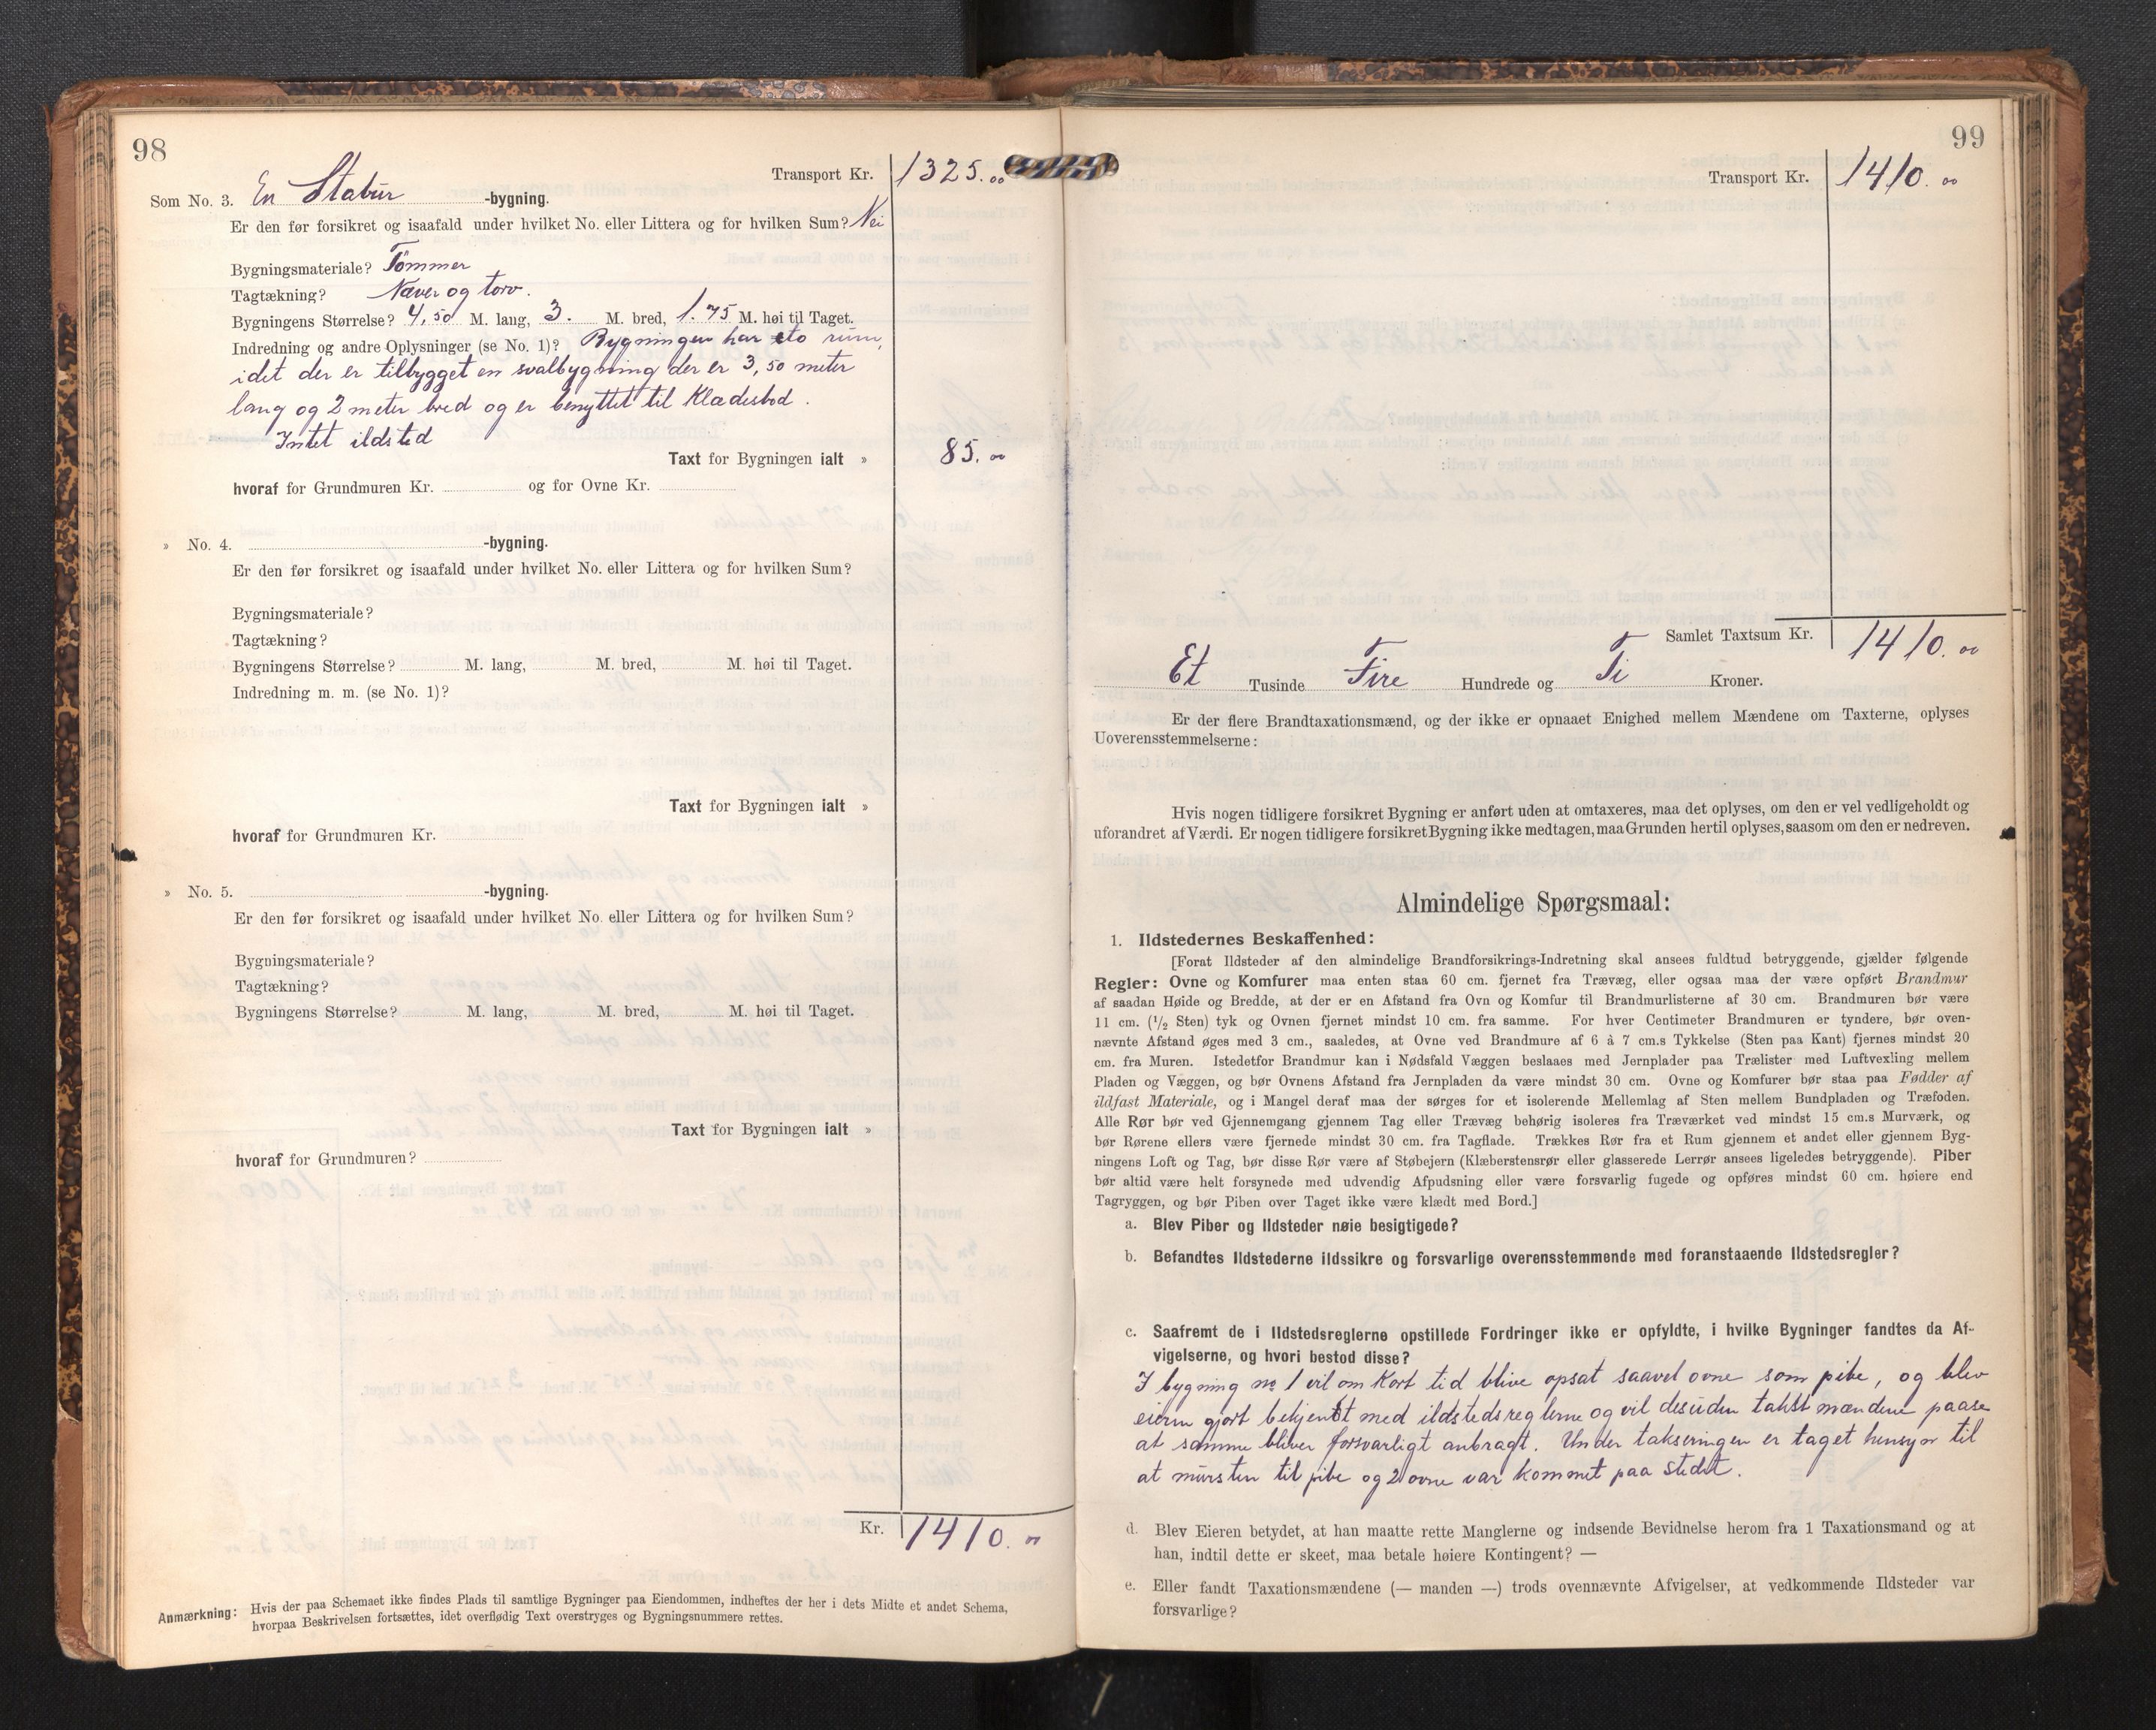 98
Transport Kr. 1325.00
Som No. 3. En Stabur -bygning.
Er den før forsikret og isaafald under hvilket No. eller Littera og for hvilken Sum? Nei
Bygningsmateriale? Tömmer
Tagtækning? Næver og torv.
Bygningens Størrelse? 4,50 M. lang, 3. M. bred, 1.75 M. høi til Taget.
Indredning og andre Oplysninger (se No. 1)? Bygningen har to rum,
idet der er tilbygget en svalbygning der er 3,50 meter
lang og 2 meter bred og er benyttet til Klædesbod.
Intet ildsted
Taxt for Bygningen ialt » 85.00
hvoraf for Grundmuren Kr. og for Ovne Kr.
» No. 4. -bygning.
Er den før forsikret og isaafald under hvilket No. eller Littera og for hvilken Sum?
Bygningsmateriale?
Tagtækning?
Bygningens Størrelse? M. lang, M. bred, M. høi til Taget.
Indredning m. m. (se No. 1)?
Taxt for Bygningen ialt »
hvoraf for Grundmuren Kr.
» No. 5. -bygning.
Er den før forsikret og isaafald under hvilket No. eller Littera og for hvilken Sum?
Bygningsmateriale?
Tagtækning?
Bygningens Størrelse? M. lang, M. bred, M. høi til Taget.
Taxt for Bygningen ialt »
hvoraf for Grundmuren?
Kr. 1410.00
Anmærkning: Hvis der paa Schemaet ikke findes Plads til samtlige Bygninger paa Eiendommen, indheftes der her i dets Midte et andet Schema,
hvorpaa Beskrivelsen fortsættes, idet overflødig Text overstryges og Bygningsnummere rettes.
99
Transport Kr. 1410.00
Samlet Taxtsum Kr. 1410.00
Et Tusinde Fire Hundrede og Ti Kroner.
Er der flere Brandtaxationsmænd, og der ikke er opnaaet Enighed mellem Mændene om Taxterne, oplyses
Uoverensstemmelserne:
Hvis nogen tidligere forsikret Bygning er anført uden at omtaxeres, maa det oplyses, om den er vel vedligeholdt og
uforandret af Værdi. Er nogen tidligere forsikret Bygning ikke medtagen, maa Grunden hertil oplyses, saasom om den er nedreven.
Almindelige Spørgsmaal:
1. Ildstedernes Beskaffenhed:
[Forat Ildsteder af den almindelige Brandforsikrings-Indretning skal ansees fuldtud betryggende, gjælder følgende
Regler: Ovne og Komfurer maa enten staa 60 cm. fjernet fra Trævæg, eller ogsaa maa der være opført Brandmur
af saadan Høide og Bredde, at der er en Afstand fra Ovn og Komfur til Brandmurlisterne af 30 cm. Brandmuren bør være
11 cm. (1/2 Sten) tyk og Ovnen fjernet mindst 10 cm. fra samme. For hver Centimeter Brandmuren er tyndere, bør oven-
nævnte Afstand øges med 3 cm., saaledes, at Ovne ved Brandmure af 6 à 7 cm.s Tykkelse (Sten paa Kant) fjernes mindst 20
cm. fra Muren. Istedetfor Brandmur kan i Nødsfald Væggen beslaaes med Jernplader paa Trælister med Luftvexling mellem
Pladen og Væggen, og bør Ovnens Afstand fra Jernpladen da være mindst 30 cm. Ovne og Komfurer bør staa paa Fødder af
ildfast Materiale, og i Mangel deraf maa der sørges for et isolerende Mellemlag af Sten mellem Bundpladen og Træfoden.
Alle Rør bør ved Gjennemgang gjennem Tag eller Trævæg behørig isoleres fra Træværket ved mindst 15 cm.s Murværk, og
bør Rørene ellers være fjernede mindst 30 cm. fra Tagflade. Trækkes Rør fra et Rum gjennem et andet eller gjennem Byg-
ningens Loft og Tag, bør disse Rør være af Støbejern (Klæberstensrør eller glasserede Lerrør ansees ligeledes betryggende). Piber
bør altid være helt forsynede med udvendig Afpudsning eller være forsvarlig fugede og opføres mindst 60 cm. høiere end
Tagryggen, og bør Piben over Taget ikke være klædt med Bord.]
a. Blev Piber og Ildsteder nøie besigtigede?
b. Befandtes Ildstederne ildssikre og forsvarlige overensstemmende med foranstaaende Ildstedsregler?
c. Saafremt de i Ildstedsreglerne opstillede Fordringer ikke er opfyldte, i hvilke Bygninger fandtes da Af-
vigelserne, og hvori bestod disse?
I bygning no 1 vil om Kort tid blive opsat saavel ovne som pibe, og blev
eieren gjort bekjendt med ildstedsreglerne og vil desuden takstmændene paase
at samme bliver forsvarligt anbragt. Under takseringen er taget hensyn til
at mursten til pibe og 2 ovne var kommet paa stedet.
d. Blev Eieren betydet, at han maatte rette Manglerne og indsende Bevidnelse herom fra 1 Taxationsmand og at
han, indtil dette er skeet, maa betale høiere Kontingent? —
e. Eller fandt Taxationsmændene (— manden —) trods ovennævnte Afvigelser, at vedkommende Ildsteder var
forsvarlige?